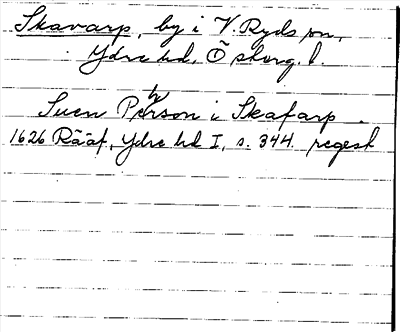 Skavarp, by i V. Ryds sn,
Ydre hd, Ö sterg. l.
Suen Pehrson i Skafarp.
1626 Rääf, Ydre hd I, s. 344. regest